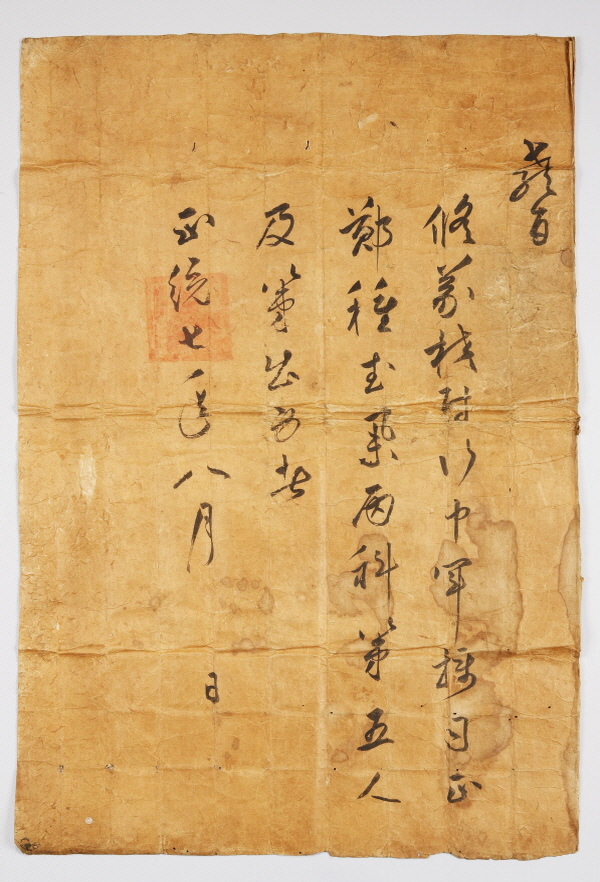 教旨
修義校尉行中軍攝司正
鄭種武果丙科第五人
及第出身者
正統七年八月 日